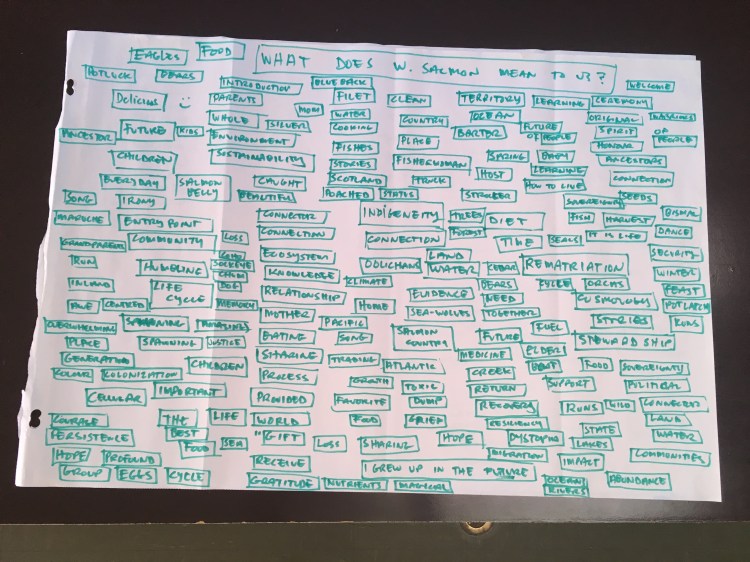 EAGLES
FOOD
WHAT DOES W. SALMON MEAN TO US?
POTLUCK
BEARS
INTRODUCTION
BLUEBACK
WELCOME
Delicious
PARENTS
FILET
CLEAN
TERRITORY
LEARNING
CEREMONY
MOM
WATER
OCEAN
ORIGINAL
ANCESTOR
FUTURE
KIDS
WHOLE
SILVER
COOKING
COUNTRY
BARTER
FUTURE OF PEOPLE
SPIRIT
OF PEOPLE
ENVIRONMENT
FISHES
PLACE
HONOUR
CHILDREN
SUSTAINABILITY
STORIES
FISHERWOMAN
SPRING
BABY
ANCESTORS
EVERYDAY
SALMON BELLY
CAUGHT
SCOTLAND
TRUCK
HOST
LEARNING HOW TO LIVE
CONNECTION
SONG
BEAUTIFUL
POACHED
STATUS
SOVEREIGNTY
SEEDS
ENTRY POINT
CONNECTOR
INDIGENEITY
TREES
DIET
FISH
HARVEST
GRANDPARENT
COMMUNITY
LOSS
CONNECTION
CONNECTION
FOREST
TIME
SEALS
IT IS LIFE
DANCE
RUN
COHO
SOCKEYE
CHUM
DOG
ECOSYSTEM
OOLICHAN
LAND
WATER
CEDAR
REMATRIATION
SECURITY
INLAND
HUMBLING
KNOWLEDGE
CLIMATE
BEARS
CYCLE
ORCAS
WINTER
LIFE CYCLE
RELATIONSHIP
EVIDENCE
NEED
COSMOLOGY
FEAST
CENTRED
MEMORY
MOTHER
HOME
SEA-WOLVES
TOGETHER
STORIES
POTLATCH
OVERWHELMING
PACIFIC
FUEL
RUNS
PLACE
SPAWNING
JUSTICE
EATING
SONG
SALMON COUNTRY
FUTURE
STEWARDSHIP
GENERATION
CHILDREN
SHARING
TRADING
ATLANTIC
MEDICINE
ELDER
FOOD
SOVEREIGNTY
KOLONIZATION
PROCESS
GROWTH
TOXIC
CREEK
BOAT
SUPPORT
POLITICAL
CELLULAR
IMPORTANT
PROVIDED
FAVORITE
DUMP
RETURN
RECOVERY
RUNS
WILD
CONNECTED
COURAGE
THE
LIFE
WORLD
FOOD
GRIEF
RESILIENCY
STATE
LAND
PERSISTENCE
BEST FOOD
SEA
"GIFT
LOSS
SHARING
HOPE
DYSTOPIA
LAKES
WATER
HOPE
PROFOUND
RECEIVE
I GREW UP IN THE FUTURE
MIGRATION
IMPACT
COMMUNITIES
GROUP
EGGS
CYCLE
GRATITUDE
NUTRIENTS
MAGICAL
OCEAN
RIVERS
ABUNDANCE